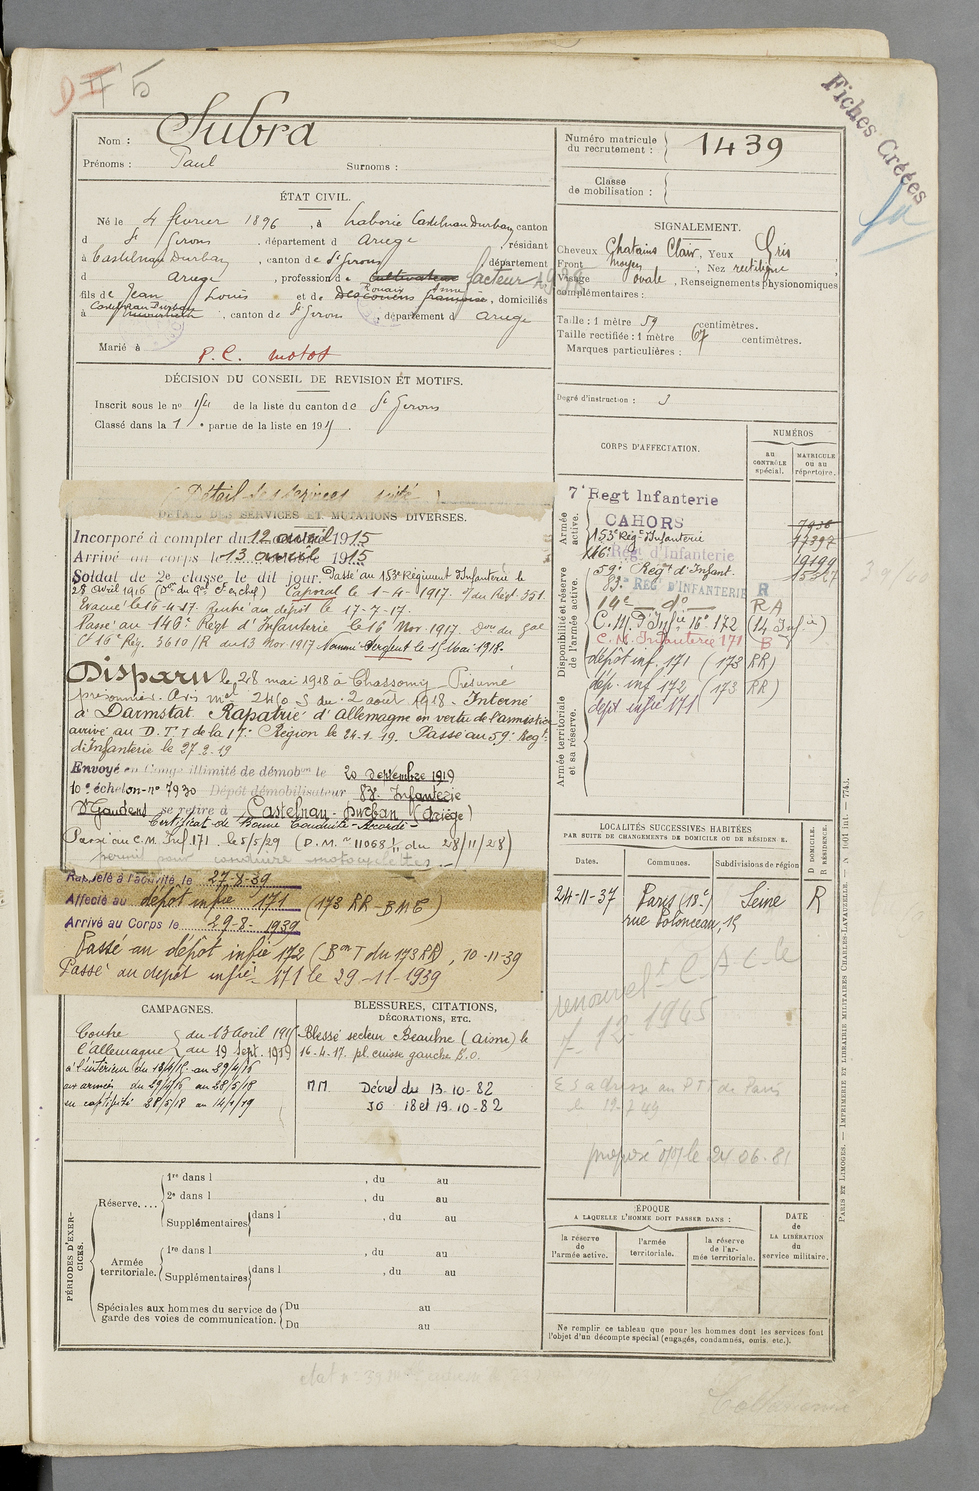 D II 5
Fiches Créées
Nom : Subra
Prénoms : Paul Surnoms :
Numéro matricule du recrutement : 1439
Classe de mobilisation :
ÉTAT CIVIL.
Né le 4 février 1896, à Laborie Castelnau Durban canton
d St Girons, département d Ariège, résidant
à Castelnau Durban, canton de St Girons, département
d Ariège, profession de Cultivateur facteur
fils de Jean Louis et de Rouaix Anne, domiciliés
à Castelnau Durban, canton de St Girons, département d Ariège
Marié à
P. C. motos
SIGNALEMENT.
Cheveux Chatains Clair, Yeux Gris
Front moyen, Nez rectiligne
Visage ovale, Renseignements physionomiques
complémentaires :
Taille : 1 mètre 59 centimètres.
Taille rectifiée : 1 mètre 67 centimètres.
Marques particulières :
Degré d'instruction : 3
DÉCISION DU CONSEIL DE REVISION ET MOTIFS.
Inscrit sous le no 154 de la liste du canton de St Girons
Classé dans la 1e partie de la liste en 1915.
(Détail des services suite)
DÉTAIL DES SERVICES ET MUTATIONS DIVERSES.
Incorporé à compter du 12 avril 1915
Arrivé au corps le 13 avril 1915
Soldat de 2e classe le dit jour. Passé au 153e Régiment d'Infanterie le
28 Avril 1916 (Don du Gal Cr en chef) Caporal le 1-4-1917. o/ du Régt 351
Evacué le 16-4-17. Rentré au dépôt le 17-7-17.
Passé au 146e Régt d'Infanterie le 16 Nov. 1917. Don du Gal
Ct 16e Rég. 3610/R du 13 Nov 1917 Nommé Sergent le 15 Mai 1918.
Disparu le 28 mai 1918 à Chassemy Présumé
prisonnier. Avis mel 2460 S du 2 août 1918. Interné
à Darmstat. Rapatrié d'Allemagne en vertu de l'armistice
arrivé au D.T.1 de la 17e Région le 24.1.19. Passé au 59e Régt
d'Infanterie le 27.2.19
Envoyé en Congé illimité de démobon le 20 septembre 1919
10e échelon no 7930 Dépôt démobilisateur 83e Infanterie
St Gaudens se retire à Castelnau-Durban (Ariège)
Certificat de Bonne Conduite Accordé
Passé au C.M. Inf. 171. le 5/5/29 (D.M. n° 11068 du 28/11/28)
permis pour conduire motocyclettes
Rappelé à l'activité le 27-8-39
Affecté au dépôt infie 171 (173 RR - BME)
Arrivé au Corps le 29-8-1939
Passé au dépôt infie 172 (Bon T du 173 RR), 10-11-39
Passé au dépôt infie 171 le 29-11-1939
CORPS D'AFFECTATION.
NUMÉROS
au CONTRÔLE spécial.
MATRICULE ou au répertoire.
Armée active.
7e Regt Infanterie
CAHORS
153e Régt Infanterie
146e Rég. d'Infanterie
59e Régt d'Infant.
Disponibilité et réserve de l'armée active.
83e REG. D'INFANTERIE R
14e do RA
C.M. d'Infie 16e 172 (14 Infie)
C.M. Infanterie 171 B
dépôt inf. 171 (173 RR)
dép. inf 172 (173 RR)
Armée territoriale et sa réserve.
dépt infie 171
LOCALITÉS SUCCESSIVES HABITÉES
PAR SUITE DE CHANGEMENTS DE DOMICILE OU DE RÉSIDENCE.
Dates. Communes. Subdivisions de région
D DOMICILE. R RÉSIDENCE.
24-11-37 Paris (18e) Seine R
rue Polonceau, 15
renouvelt C-A-C-le
7-12-1945
Es adresse au PTT de Paris
propose le 24.06.81
CAMPAGNES.
Contre l'Allemagne
du 13 avril 1915
au 19 sept. 1919
à l'intérieur du 13/4/15 au 27/4/16
aux armées du 29/4/16 au 28/5/18
en captivité 28/5/18 au 14/1/19
BLESSURES, CITATIONS,
DÉCORATIONS, ETC.
Blessé secteur Beaulne (aisne) le
16-4-17. pl. cuisse gauche E.O.
MM Décret du 13.10.82
JO 18 et 19.10.82
PÉRIODES D'EXERCICES.
Réserve....
1re dans l , du au
2e dans l , du au
Supplémentaires dans l , du au
Armée territoriale.
1re dans l , du au
Supplémentaires dans l , du au
Spéciales aux hommes du service de garde des voies de communication.
Du au
Du au
ÉPOQUE
A LAQUELLE L'HOMME DOIT PASSER DANS :
la réserve de l'armée active.
l'armée territoriale.
la réserve de l'armée territoriale.
DATE de LA LIBÉRATION du service militaire.
Ne remplir ce tableau que pour les hommes dont les services font
l'objet d'un décompte spécial (engagés, condamnés, omis, etc.).
PARIS ET LIMOGES. — IMPRIMERIE ET LIBRAIRIE MILITAIRES CHARLES-LAVAUZELLE.